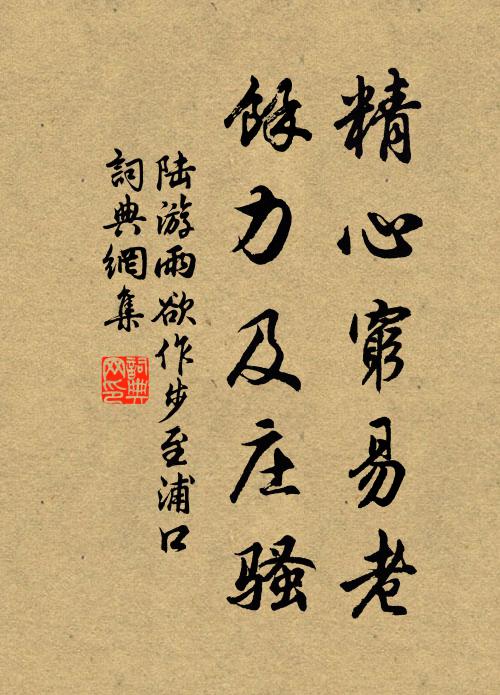 精心窮易老
餘力及庄騷
陸游雨欲作步至浦口
詞典網集
詞典網印